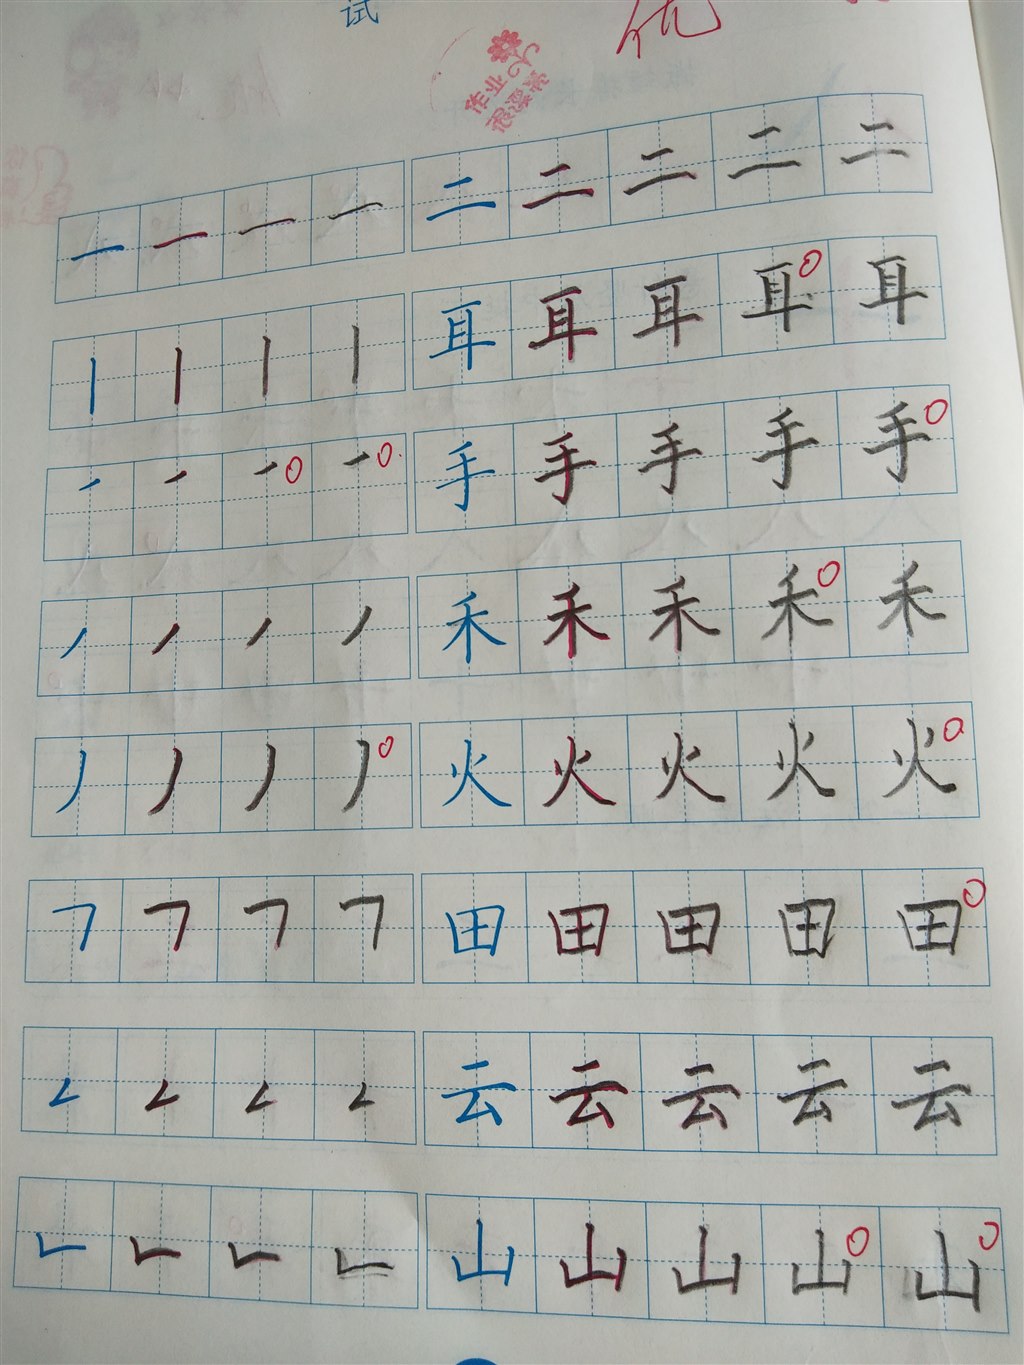 试
优
一 一 一 一 二 二 二 二 二
丨 丨 丨 丨 耳 耳 耳 耳 耳
㇀ ㇀ ㇀ ㇀ 手 手 手 手 手
丿 丿 丿 丿 禾 禾 禾 禾 禾
丿 丿 丿 丿 火 火 火 火 火
𠃍 𠃍 𠃍 𠃍 田 田 田 田 田
𠃋 𠃋 𠃋 𠃋 云 云 云 云 云
𠃊 𠃊 𠃊 𠃊 山 山 山 山 山